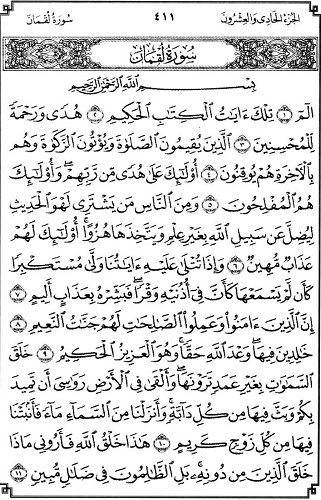 سُورَةُ لُقْمَانَ ٤١١ الجُزْءُ الحَادِي وَالعِشْرُونَ
سُورَةُ لُقْمَانَ
بِسْمِ اللَّهِ الرَّحْمَٰنِ الرَّحِيمِ
الٓمٓ ١ تِلْكَ ءَايَٰتُ الْكِتَٰبِ الْحَكِيمِ ٢ هُدًى وَرَحْمَةً
لِّلْمُحْسِنِينَ ٣ الَّذِينَ يُقِيمُونَ الصَّلَوٰةَ وَيُؤْتُونَ الزَّكَوٰةَ وَهُم
بِالْءَاخِرَةِ هُمْ يُوقِنُونَ ٤ أُولَٰٓئِكَ عَلَىٰ هُدًى مِّن رَّبِّهِمْ ۖ وَأُولَٰٓئِكَ
هُمُ الْمُفْلِحُونَ ٥ وَمِنَ النَّاسِ مَن يَشْتَرِي لَهْوَ الْحَدِيثِ
لِيُضِلَّ عَن سَبِيلِ اللَّهِ بِغَيْرِ عِلْمٍ وَيَتَّخِذَهَا هُزُوًا ۚ أُولَٰٓئِكَ لَهُمْ
عَذَابٌ مُّهِينٌ ٦ وَإِذَا تُتْلَىٰ عَلَيْهِ ءَايَٰتُنَا وَلَّىٰ مُسْتَكْبِرًا
كَأَن لَّمْ يَسْمَعْهَا كَأَنَّ فِي أُذُنَيْهِ وَقْرًا ۖ فَبَشِّرْهُ بِعَذَابٍ أَلِيمٍ ٧
إِنَّ الَّذِينَ ءَامَنُوا وَعَمِلُوا الصَّٰلِحَٰتِ لَهُمْ جَنَّٰتُ النَّعِيمِ ٨
خَٰلِدِينَ فِيهَا ۖ وَعْدَ اللَّهِ حَقًّا ۚ وَهُوَ الْعَزِيزُ الْحَكِيمُ ٩ خَلَقَ
السَّمَٰوَٰتِ بِغَيْرِ عَمَدٍ تَرَوْنَهَا ۖ وَأَلْقَىٰ فِي الْأَرْضِ رَوَٰسِيَ أَن تَمِيدَ
بِكُمْ وَبَثَّ فِيهَا مِن كُلِّ دَآبَّةٍ ۚ وَأَنزَلْنَا مِنَ السَّمَآءِ مَآءً فَأَنۢبَتْنَا
فِيهَا مِن كُلِّ زَوْجٍ كَرِيمٍ ١٠ هَٰذَا خَلْقُ اللَّهِ فَأَرُونِي مَاذَا
خَلَقَ الَّذِينَ مِن دُونِهِ ۚ بَلِ الظَّٰلِمُونَ فِي ضَلَٰلٍ مُّبِينٍ ١١